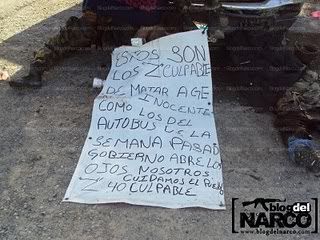 ESTOS SON
LOS Z CULPABLE
DE MATAR A GE
INOCENTE
COMO LOS DEL
AUTOBUS DE LA
SEMANA PASAD
GOBIERNO ABRE LOS
OJOS NOSOTROS
CUIDAMOS EL PUEB
Z 40 CULPABLE
blogdel
NARCO
www.blogdelnarco.com